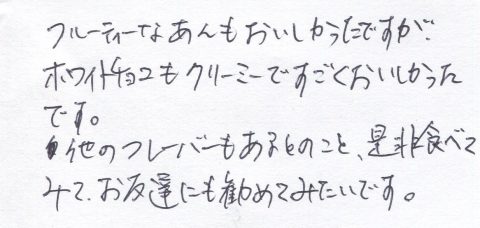 フルーティーなあんもおいしかったですが、
ホワイトチョコもクリーミーですごくおいしかった
です。
他のフレーバーもあるとのこと、是非食べて
みて、お友達にも勧めてみたいです。